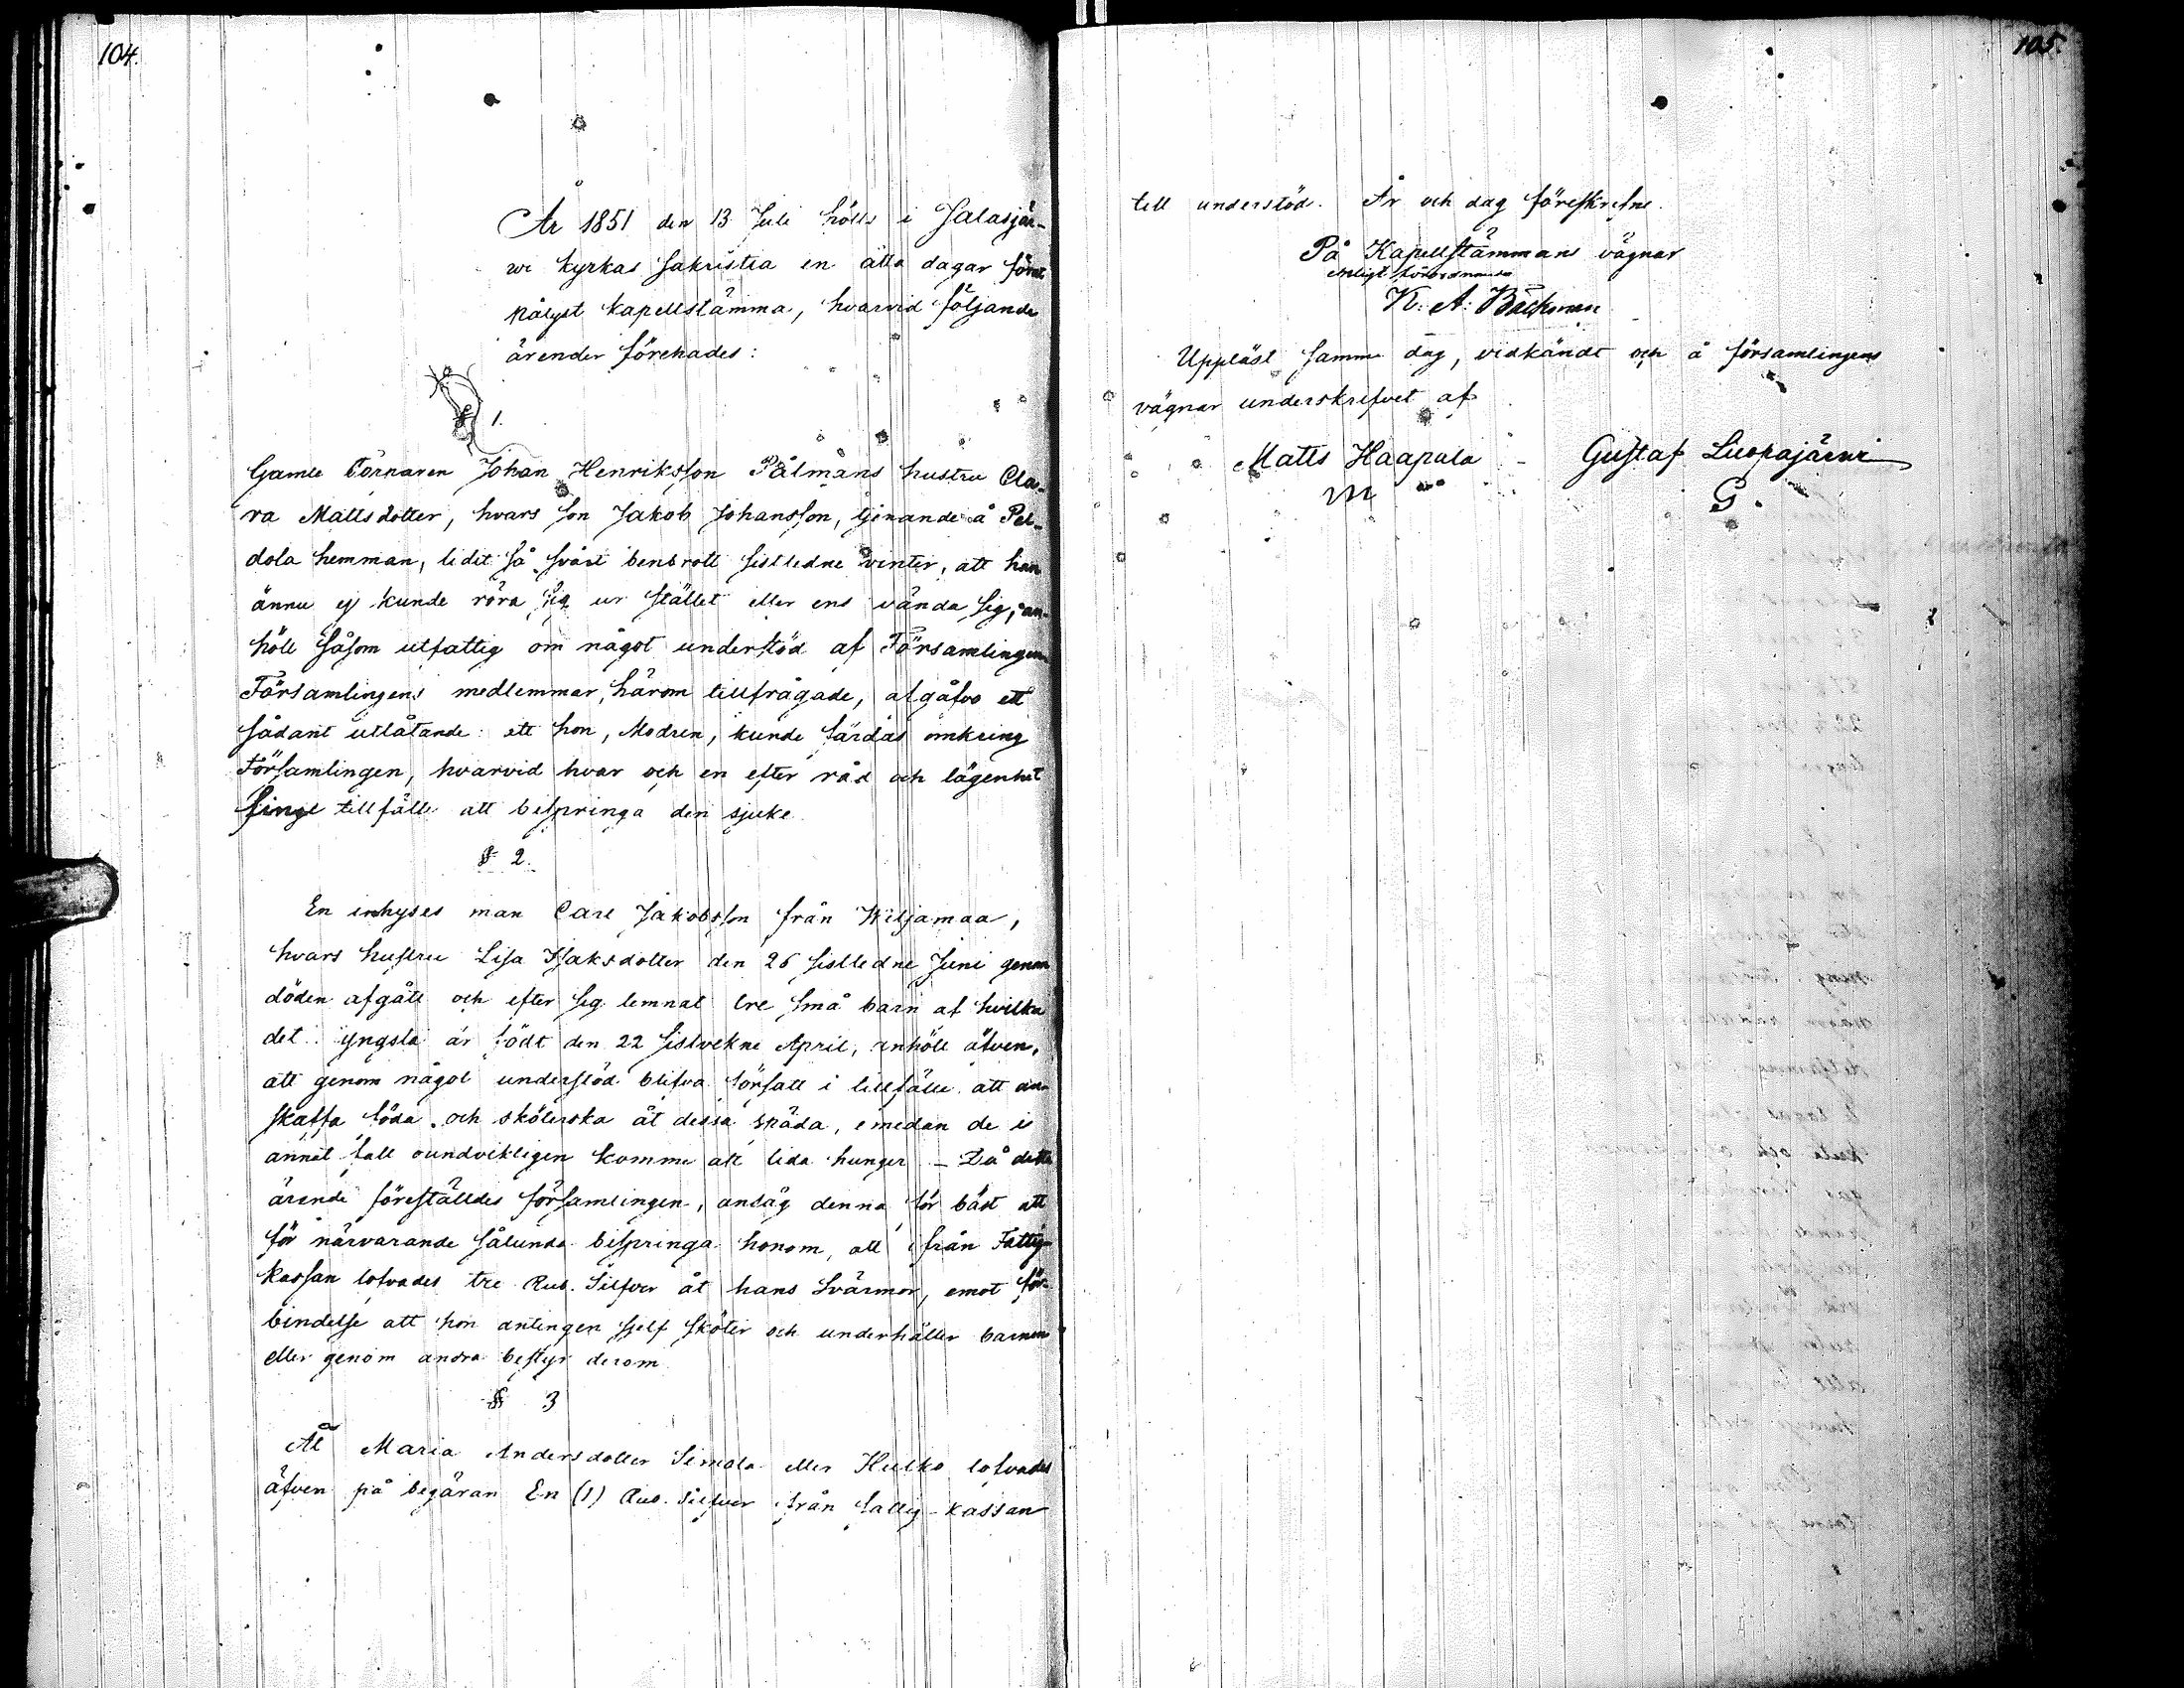 104.
År 1851 den 13 Juli hölls i Jalasjär-
wi kyrkas sakristia en åtta dagar förut
pålyst kapellstämma, hvarvid följande
ärender förehades:
§ 1.
Gamle Törnaren Johan Henriksson Pålmans hustru Cla-
ra Mattsdotter, hvars son Jakob Johansson, tjenande å Pel-
dola hemman, lidit så svårt benbrott sistledne vinter, att han
ännu ej kunde röra sig ur stället eller ens vända sig, an-
höll såsom utfattig om något understöd af Församlingen
Församlingens medlemmar, härom tillfrågade, afgåfvo ett
sådant utlåtande: att hon, Modren, kunde färdas omkring
Församlingen, hvarvid hvar och en efter råd och lägenhet
finge tillfälle att bispringa den sjuke
§ 2.
En inhyses man Carl Jakobsson från Wiljamaa,
hvars hustru Lisa Isaksdotter den 26 sistledne Juni genom
döden afgått och efter sig lemnat tre små barn af hvilka
det yngsta är födt den 22 sistvekne April, anhöll äfven,
att genom något understöd blifva försatt i tillfälle att an-
skaffa föda och sköterska åt dessa späda, emedan de i
annat fall oundvikligen komme att lida hunger – Då detta
ärende föreställdes församlingen, ansåg denna för bäst att
för närvarande sålunda bispringa honom, att ifrån Fattig-
kassan lofvades tre Rub. Silfver åt hans Svärmor, emot för-
bindelse att hon antingen sjelf sköter och underhåller barnen
eller genom andra bestyr derom
§ 3
Åt Maria Andersdotter Simola eller Hulko lofvades
äfven på begäran En (1) Rub. Silfver från fattig-kassan
105.
till understöd. År och dag föreskrefne.
På Kapellstämmans vägnar
enligt förordnande
K: A: Backman
Uppläst samma dag, vidkändt och å församlingens
vägnar underskrifvet af
Matts Haapala – Gustaf Luopajärvi
M G.